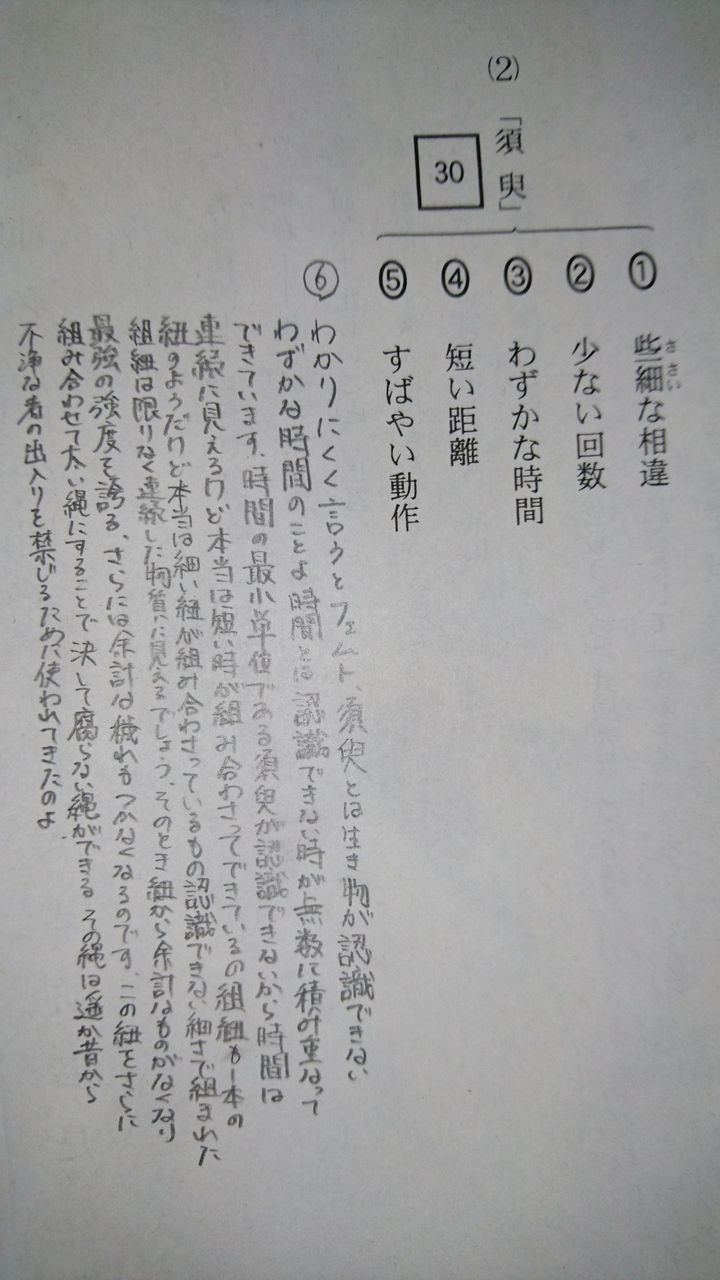 (2) 「須臾」
30
① 些細な相違
ささい
② 少ない回数
③ わずかな時間
④ 短い距離
⑤ すばやい動作
⑥ わかりにくく言うとフェムト、須臾とは生き物が認識できない
わずかな時間のことよ時間とは認識できない時が無数に積み重なって
できています、時間の最小単位である須臾が認識できないから時間は
連続に見えるけど本当は短い時が組み合わさってできているの組紐も1本の
紐のようだけど本当は細い紐が組み合わさっているもの認識できない細さで組まれた
組紐は限りなく連続した物質に見えるでしょう、そのとき紐から余計なものがなくなり
最強の強度を誇る、さらには余計な穢れもつかなくなるのです、この紐をさらに
組み合わせて太い縄にすることで決して腐らない縄ができる その縄は遥か昔から
不浄な者の出入りを禁じるために使われてきたのよ.